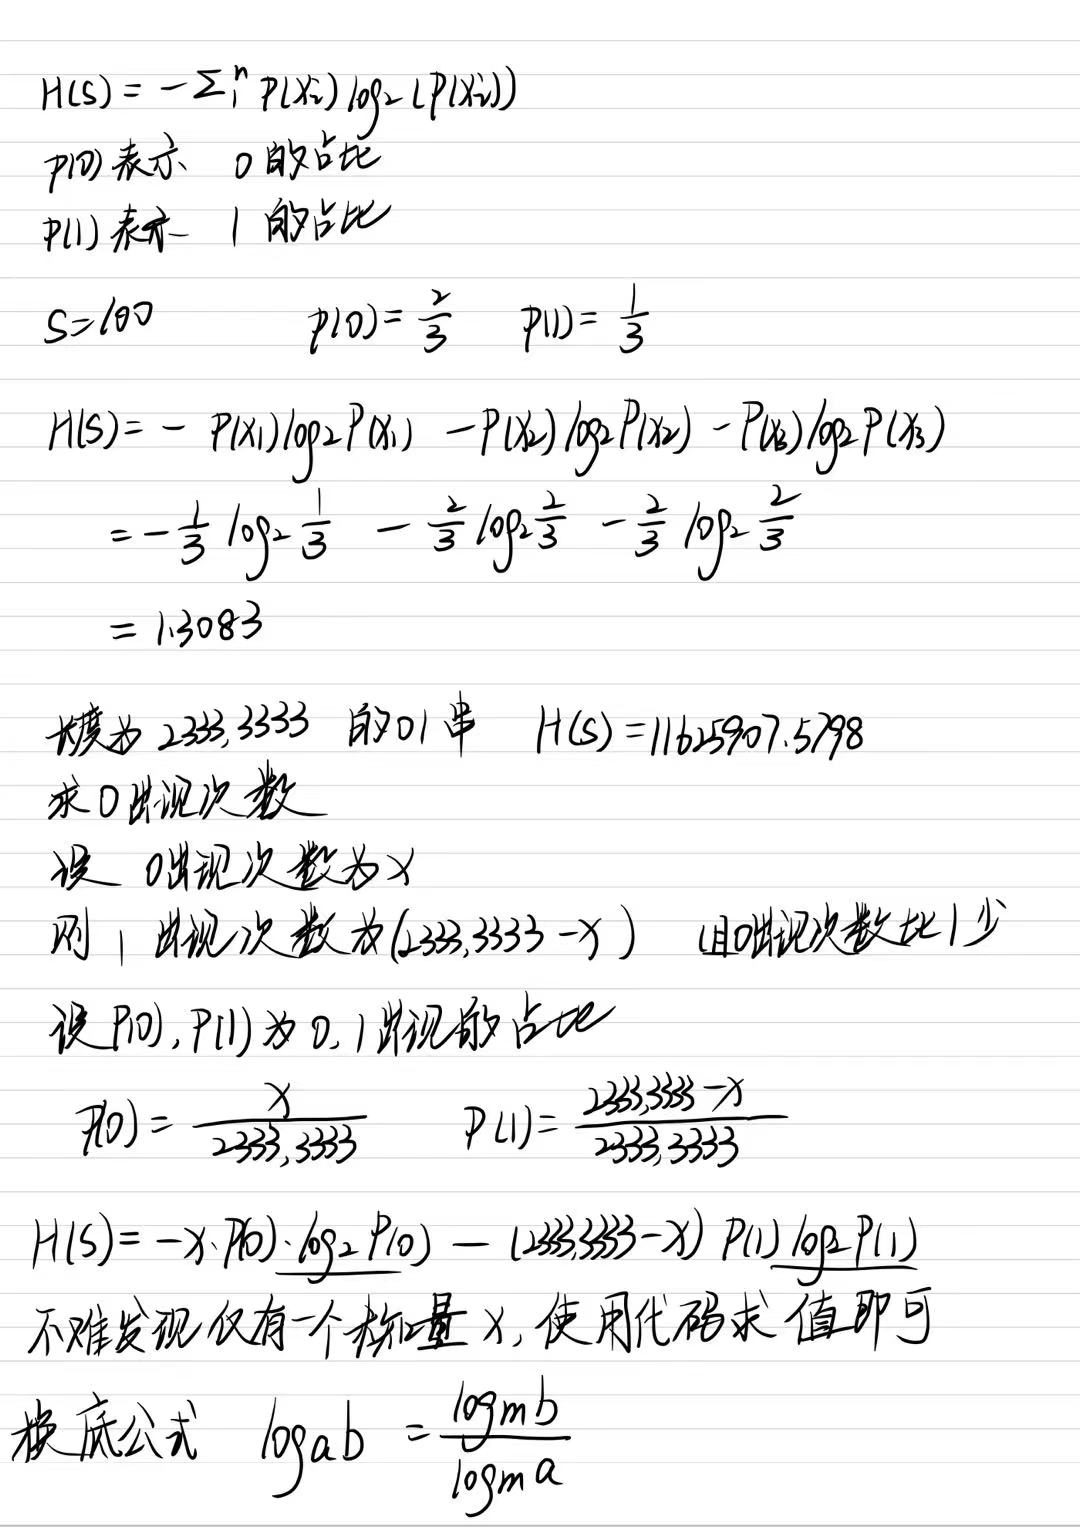 H(S) = -Σ₁ⁿ P(xi) log₂(P(xi))
P(0)表示 0的占比
P(1)表示 1的占比
S=100 P(0)=2/3 P(1)=1/3
H(S)= - P(x₁)log₂P(x₁) -P(x₂)log₂P(x₂) -P(x₃)log₂P(x₃)
= -1/3 log₂ 1/3 - 2/3 log₂ 2/3 - 2/3 log₂ 2/3
= 1.3083
长度为 2333,3333 的01串 H(S)=11625907.5798
求0出现次数
设 0出现次数为x
则 1 出现次数为(2333,3333-x) 且0出现次数比1少
设P(0),P(1)为0,1出现的占比
P(0)= x/2333,3333 P(1)= 2333,3333-x/2333,3333
H(S)= -x·P(0)·log₂P(0) - (2333,3333-x) P(1)log₂P(1)
不难发现仅有一个未知量x,使用代码求值即可
换底公式 logab = logmb/logma